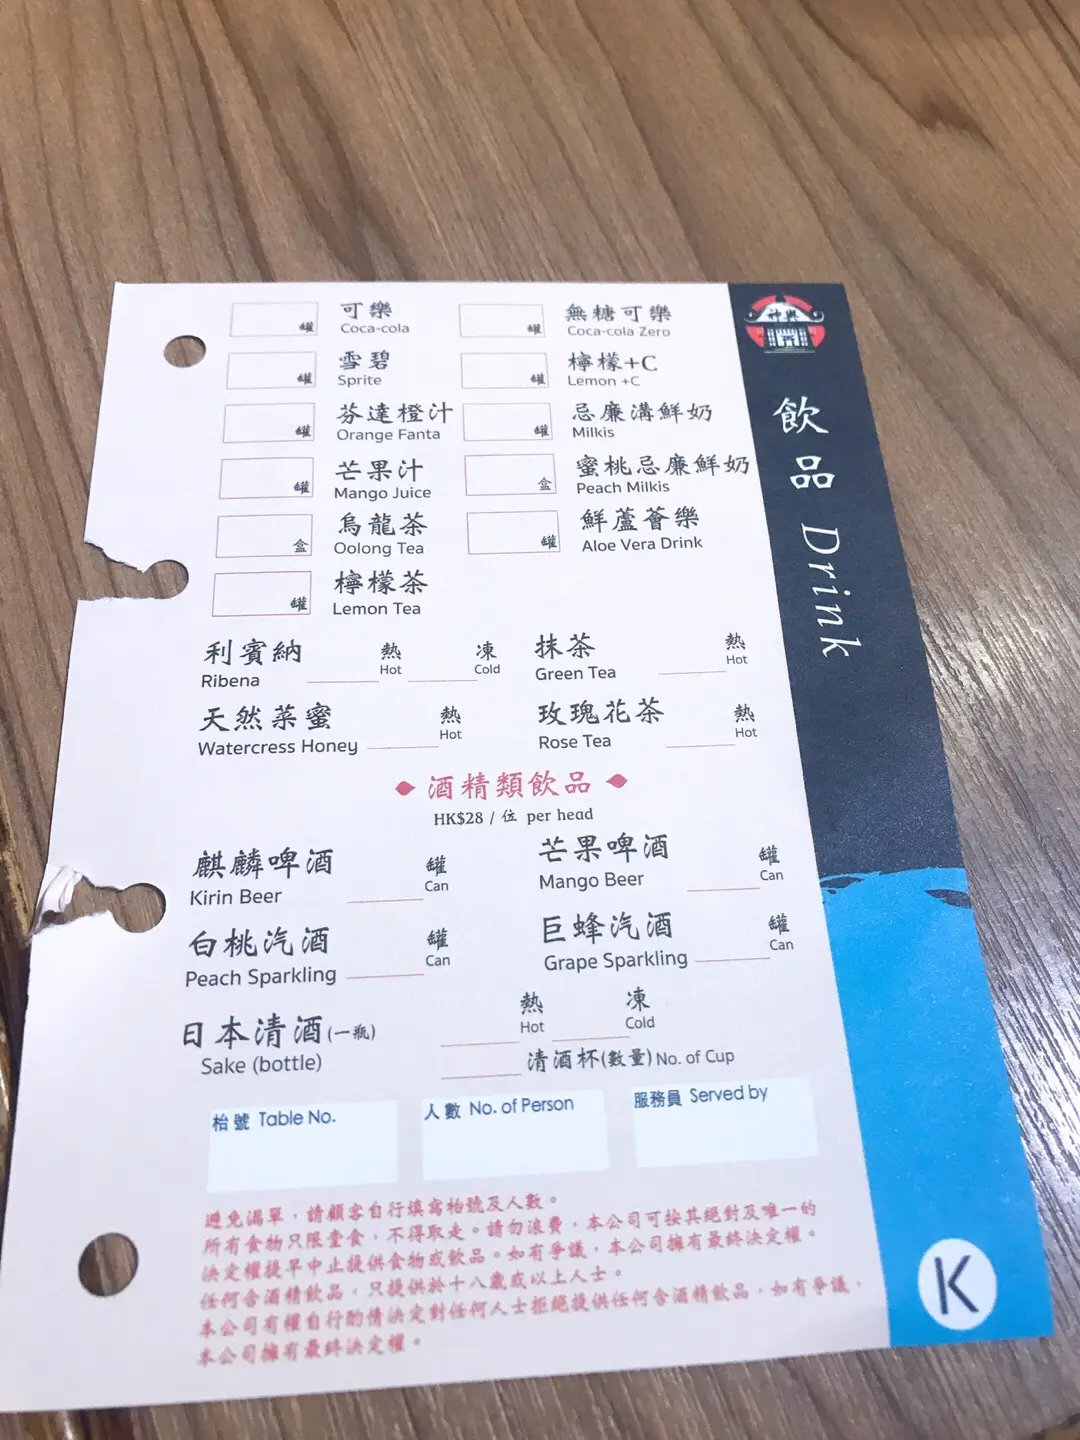 可樂 無糖可樂
罐 Coca-cola 罐 Coca-cola Zero
雪碧 檸檬+C
罐 Sprite 罐 Lemon +C
芬達橙汁 忌廉溝鮮奶
罐 Orange Fanta 罐 Milkis
芒果汁 蜜桃忌廉鮮奶
罐 Mango Juice 盒 Peach Milkis
烏龍茶 鮮蘆薈樂
盒 Oolong Tea 罐 Aloe Vera Drink
檸檬茶
罐 Lemon Tea
利賓納 熱 凍 抹茶 熱
Ribena Hot Cold Green Tea Hot
天然菜蜜 熱 玫瑰花茶 熱
Watercress Honey Hot Rose Tea Hot
酒精類飲品
HK$28 / 位 per head
麒麟啤酒 罐 芒果啤酒 罐
Kirin Beer Can Mango Beer Can
白桃汽酒 罐 巨蜂汽酒 罐
Peach Sparkling Can Grape Sparkling Can
日本清酒(一瓶) 熱 凍
Sake (bottle) Hot Cold
清酒杯(數量) No. of Cup
枱號 Table No. 人數 No. of Person 服務員 Served by
避免漏單，請顧客自行填寫枱號及人數。
所有食物只限堂食，不得取走。請勿浪費，本公司可按其絕對及唯一的
決定權提早中止提供食物或飲品。如有爭議，本公司擁有最終決定權。
任何含酒精飲品，只提供於十八歲或以上人士。
本公司有權自行酌情決定對任何人士拒絕提供任何含酒精飲品，如有爭議，
本公司擁有最終決定權。
神輿
飲品 Drink
K